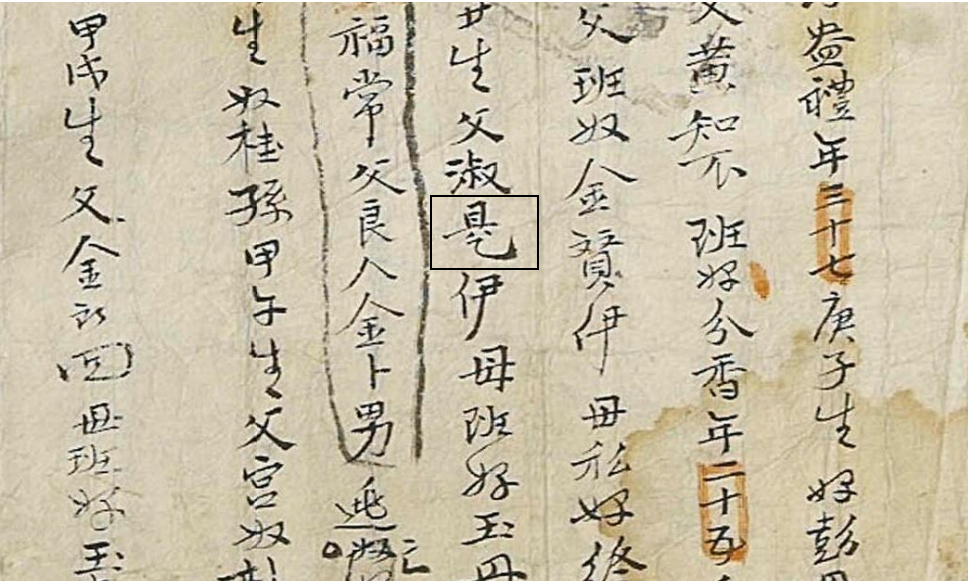 禮年三十七庚子生 婢彭
父黃知不 班婢分香年二十五
父班奴金贇伊 母私婢終
丑生父淑伊 母班婢玉丹
福常父良人金卜男 逃
生奴桂孫甲午生父宮奴
甲戌生父金回 母班婢玉